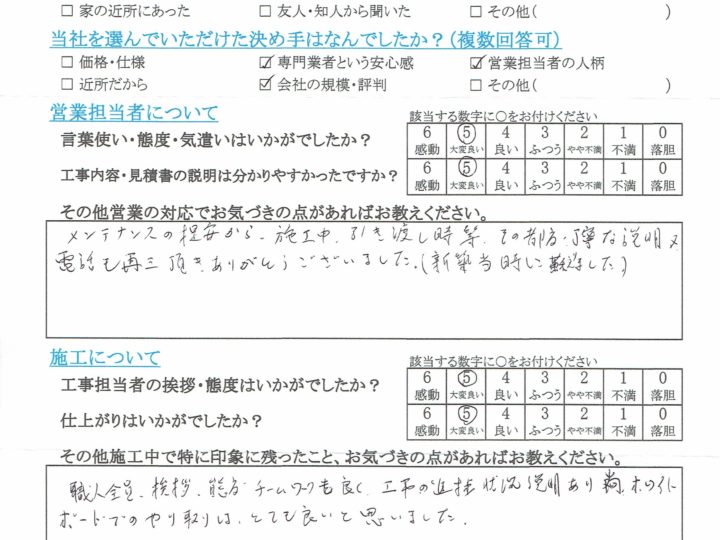 □ 家の近所にあった □ 友人・知人から聞いた □ その他( )
当社を選んでいただけた決め手はなんでしたか？(複数回答可)
□ 価格・仕様 ☑ 専門業者という安心感 ☑ 営業担当者の人柄
□ 近所だから ☑ 会社の規模・評判 □ その他( )
営業担当者について
該当する数字に○をお付けください
言葉使い・態度・気遣いはいかがでしたか？
6 5 4 3 2 1 0
感動 大変良い 良い ふつう やや不満 不満 落胆
工事内容・見積書の説明は分かりやすかったですか？
6 5 4 3 2 1 0
感動 大変良い 良い ふつう やや不満 不満 落胆
その他営業の対応でお気づきの点があればお教えください。
メンテナンスの提案から、施工中、引き渡し時等、その都度丁寧な説明又
電話も再三頂きありがとうございました。(新築当時して難渋した)
施工について
該当する数字に○をお付けください
工事担当者の挨拶・態度はいかがでしたか？
6 5 4 3 2 1 0
感動 大変良い 良い ふつう やや不満 不満 落胆
仕上がりはいかがでしたか？
6 5 4 3 2 1 0
感動 大変良い 良い ふつう やや不満 不満 落胆
その他施工中で特に印象に残ったこと、お気づきの点があればお教えください。
職人全員、挨拶、態度、チームワークも良く、工事の進捗状況説明あり 尚、ホワイト
ボードでのやり取りは、とても良いと思いました。